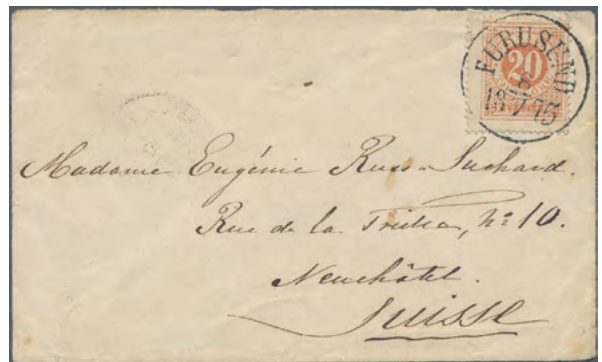 FURUSUND
20
Madame Eugénie Russ-Suchard.
Rue de la Treille, Nº 10.
Neuchâtel.
Suisse